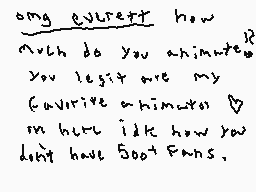 omg everett how
much do you animate!?
you legit are my
favorite animator ♡
on here idk how you
don't have 500+ fans.